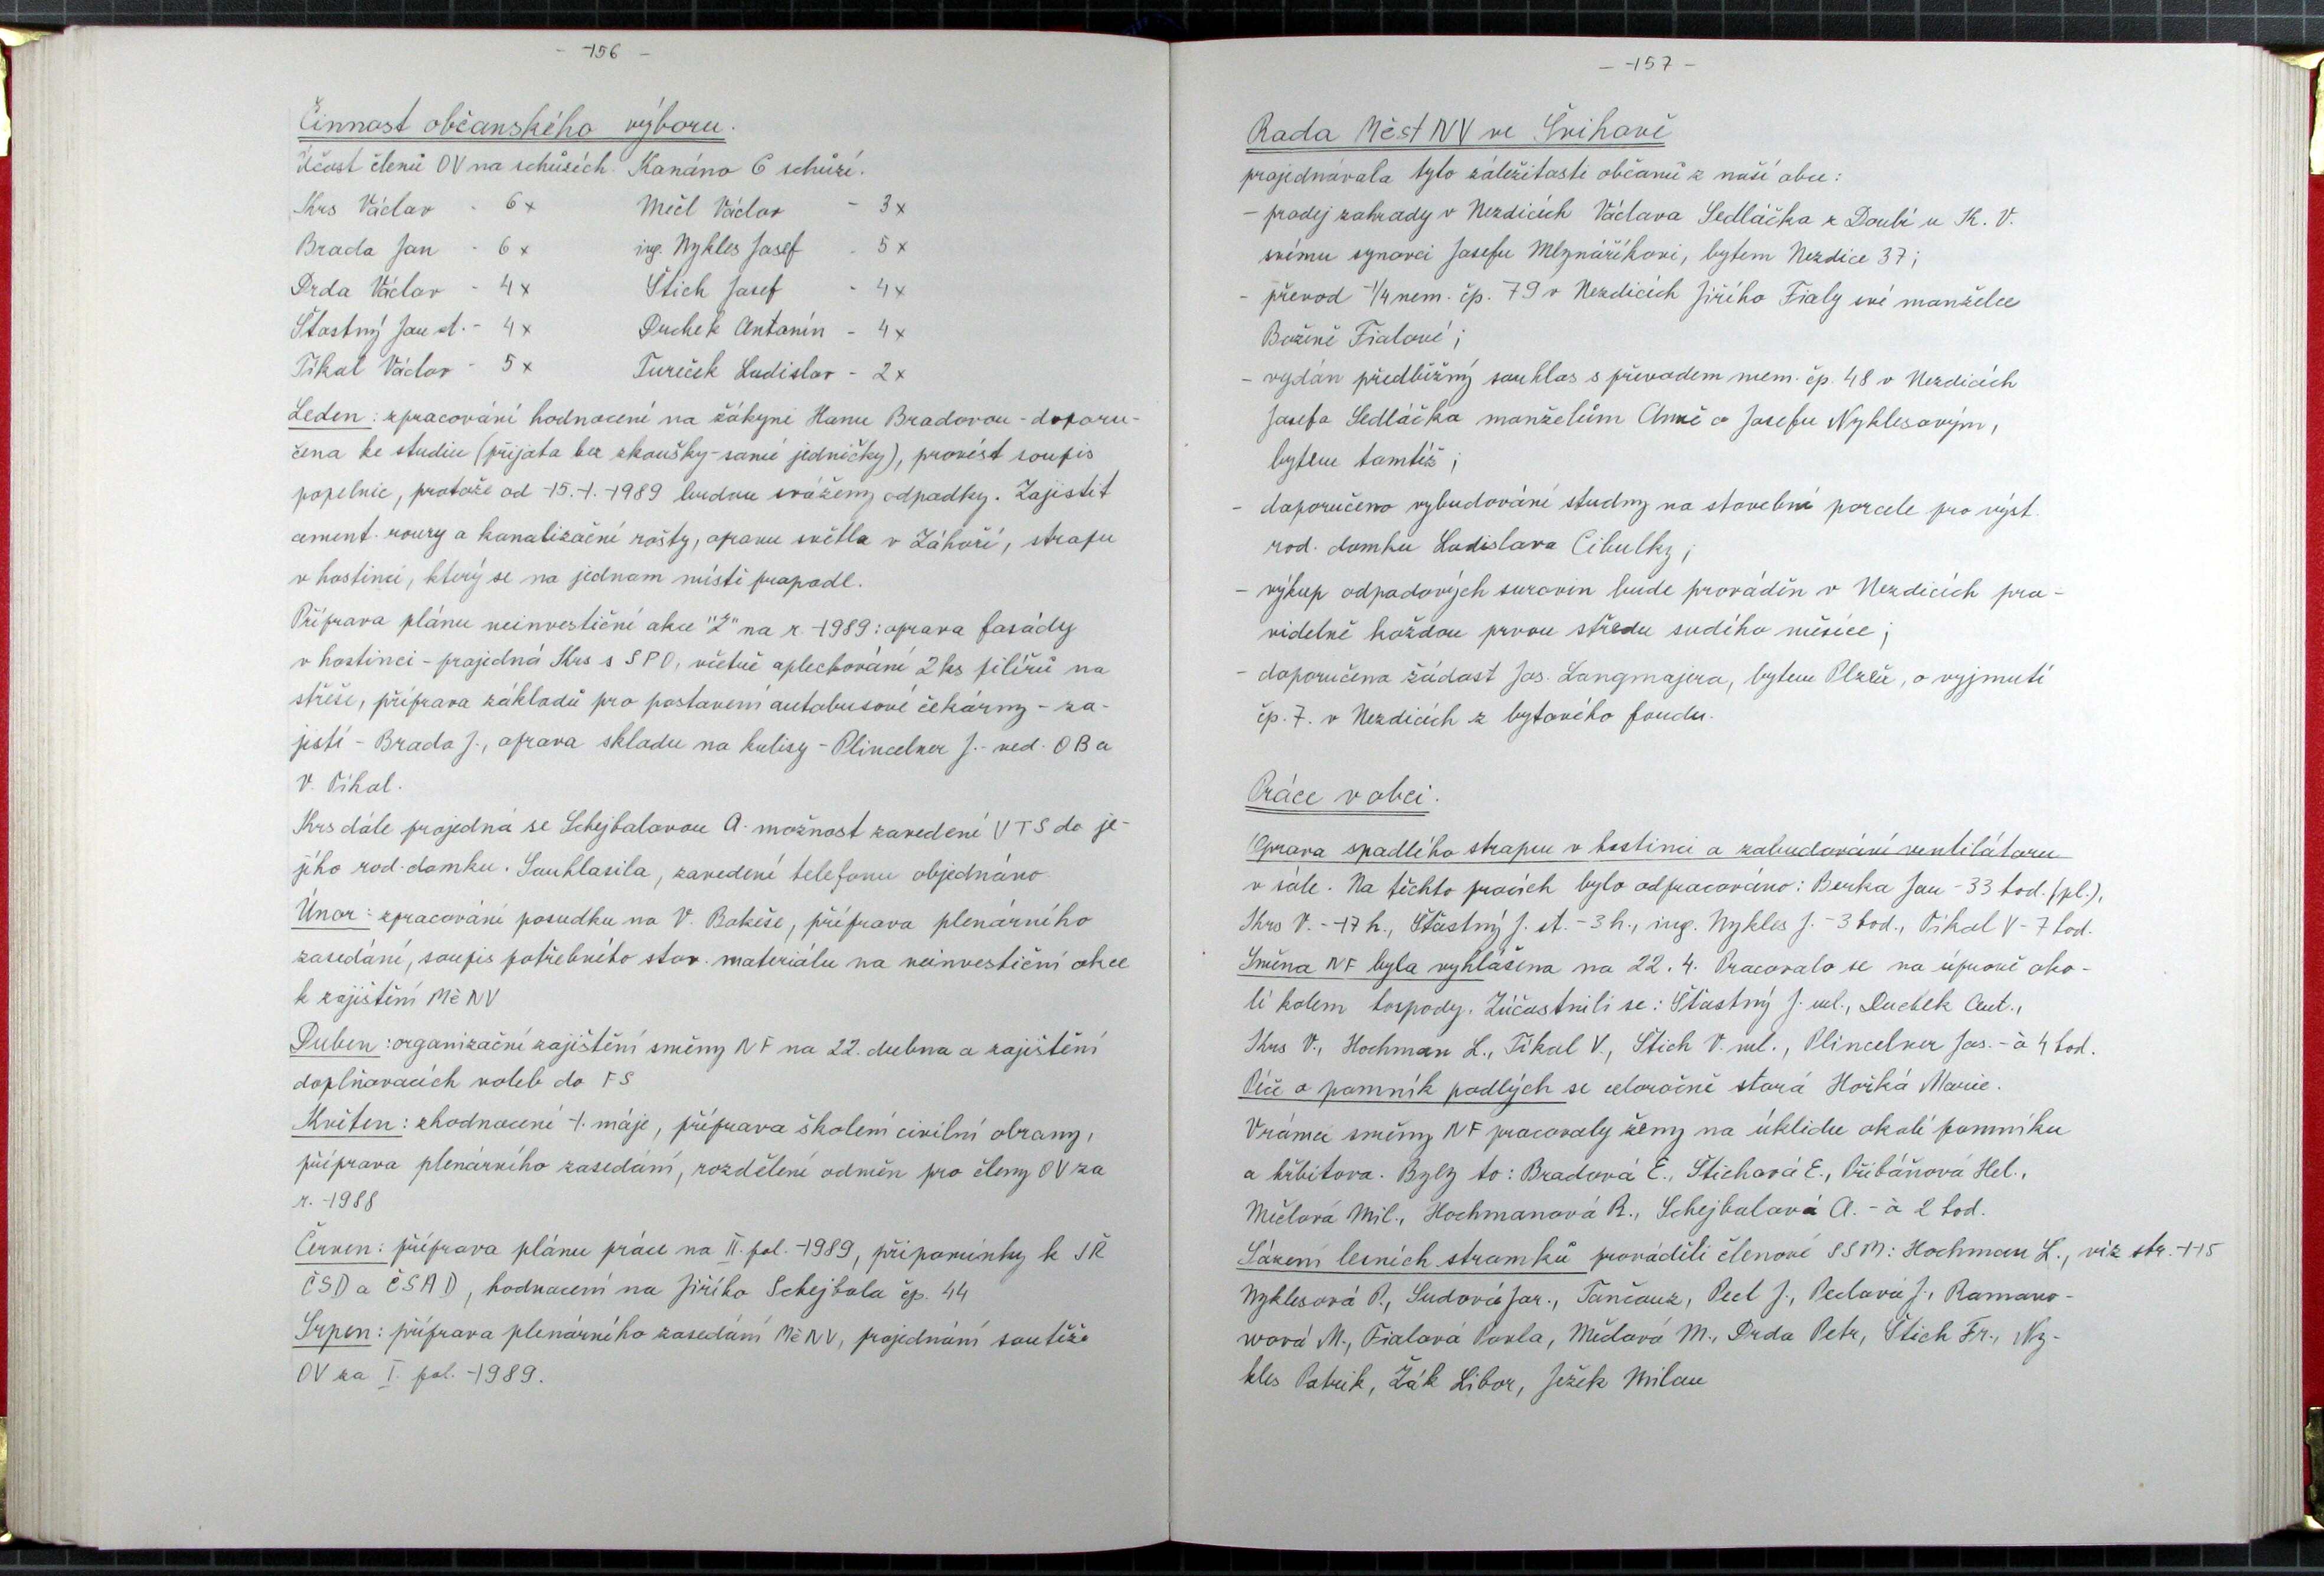 - 156 -
Činnost občanského výboru.
Účast členů OV na schůzích. Konáno 6 schůzí.
Krs Václav - 6x Mečl Václav - 3x
Brada Jan - 6x ing. Nykles Josef - 5x
Drda Václav - 4x Štich Josef - 4x
Šťastný Jan st. - 4x Duchek Antonín - 4x
Tikal Václav - 5x Tureček Ladislav - 2x
Leden: zpracování hodnocení na žákyni Hanu Bradovou - doporu-
čena ke studiu (přijata bez zkoušky - samé jedničky), provést soupis
popelnic, protože od 15.1.1989 budou sváženy odpadky. Zajistit
cement. roury a kanalizační rošty, opravu světla v Záhoří, stropu
v hostinci, který se na jednom místě propadl.
Příprava plánu neinvestiční akce "Z" na r. 1989: oprava fasády
v hostinci - projedná Krs s SPO, včetně oplechování 2 ks pilířů na
střeše, příprava základů pro postavení autobusové čekárny - za-
jistí - Brada J., oprava skladu na kulisy - Plincelner J. - ved. OB a
V. Tikal.
Krs dále projedná se Schejbalovou A. možnost zavedení VTS do je-
jího rod. domku. Souhlasila, zavedení telefonu objednáno.
Únor: zpracování posudku na V. Bokeše, příprava plenárního
zasedání, soupis potřebného stav. materiálu na neinvestiční akce
k zajištění MěNV
Duben: organizační zajištění směny NF na 22. dubna a zajištění
doplňovacích voleb do FS
Květen: zhodnocení 1. máje, příprava školení civilní obrany,
příprava plenárního zasedání, rozdělení odměn pro členy OV za
r. 1988
Červen: příprava plánu práce na II. pol. 1989, připomínky k JŘ
ČSD a ČSAD, hodnocení na Jiřího Schejbala čp. 44
Srpen: příprava plenárního zasedání MěNV, projednání soutěže
OV za I. pol. 1989.
- 157 -
Rada Měst NV ve Švihově
projednávala tyto záležitosti občanů z naší obce:
- prodej zahrady v Nezdicích Václava Sedláčka z Doubí u K. V.
svému synovci Josefu Mlynáříkovi, bytem Nezdice 37;
- převod 1/4 nem. čp. 79 v Nezdicích Jiřího Fialy své manželce
Boženě Fialové;
- vydán předběžný souhlas s převodem nem. čp. 48 v Nezdicích
Josefa Sedláčka manželům Anně a Josefu Nyklesovým,
bytem tamtéž;
- doporučeno vybudování studny na stavební parcele pro výst.
rod. domku Ladislava Cibulky;
- výkup odpadových surovin bude prováděn v Nezdicích pra-
videlně každou prvou středu sudého měsíce;
- doporučena žádost Jos. Langmajera, bytem Plzeň, o vyjmutí
čp. 7. v Nezdicích z bytového fondu.
Práce v obci.
Oprava spadlého stropu v hostinci a zabudování ventilátoru
v sále. Na těchto pracích bylo odpracováno: Berka Jan - 33 hod. (pl.),
Krs V. - 17 h., Šťastný J. st. - 3 h., ing. Nykles J. - 3 hod., Tikal V - 7 hod.
Směna NF byla vyhlášena na 22. 4. Pracovalo se na úpravě oko-
lí kolem hospody. Zúčastnili se: Šťastný J. ml., Duchek Ant.,
Krs V., Hochman L., Tikal V., Štich V. ml., Plincelner Jos. - à 4 hod.
Péče o pomník padlých se celoročně stará Hořká Marie.
V rámci směny NF pracovaly ženy na úklidu okolí pomníku
a hřbitova. Byly to: Bradová E., Štichová E., Přibáňová Hel.,
Mečlová Mil., Hochmanová R., Schejbalová A. - à 2 hod.
Sázení lesních stromků prováděli členové SSM: Hochman L., viz str. 115
Nyklesová P., Sudová Jar., Tančouz, Pecl J., Peclová J., Romano-
wová M., Fialová Pavla, Mečlová M., Drda Petr, Štich Fr., Ny-
kles Patrik, Žák Libor, Ježek Milan